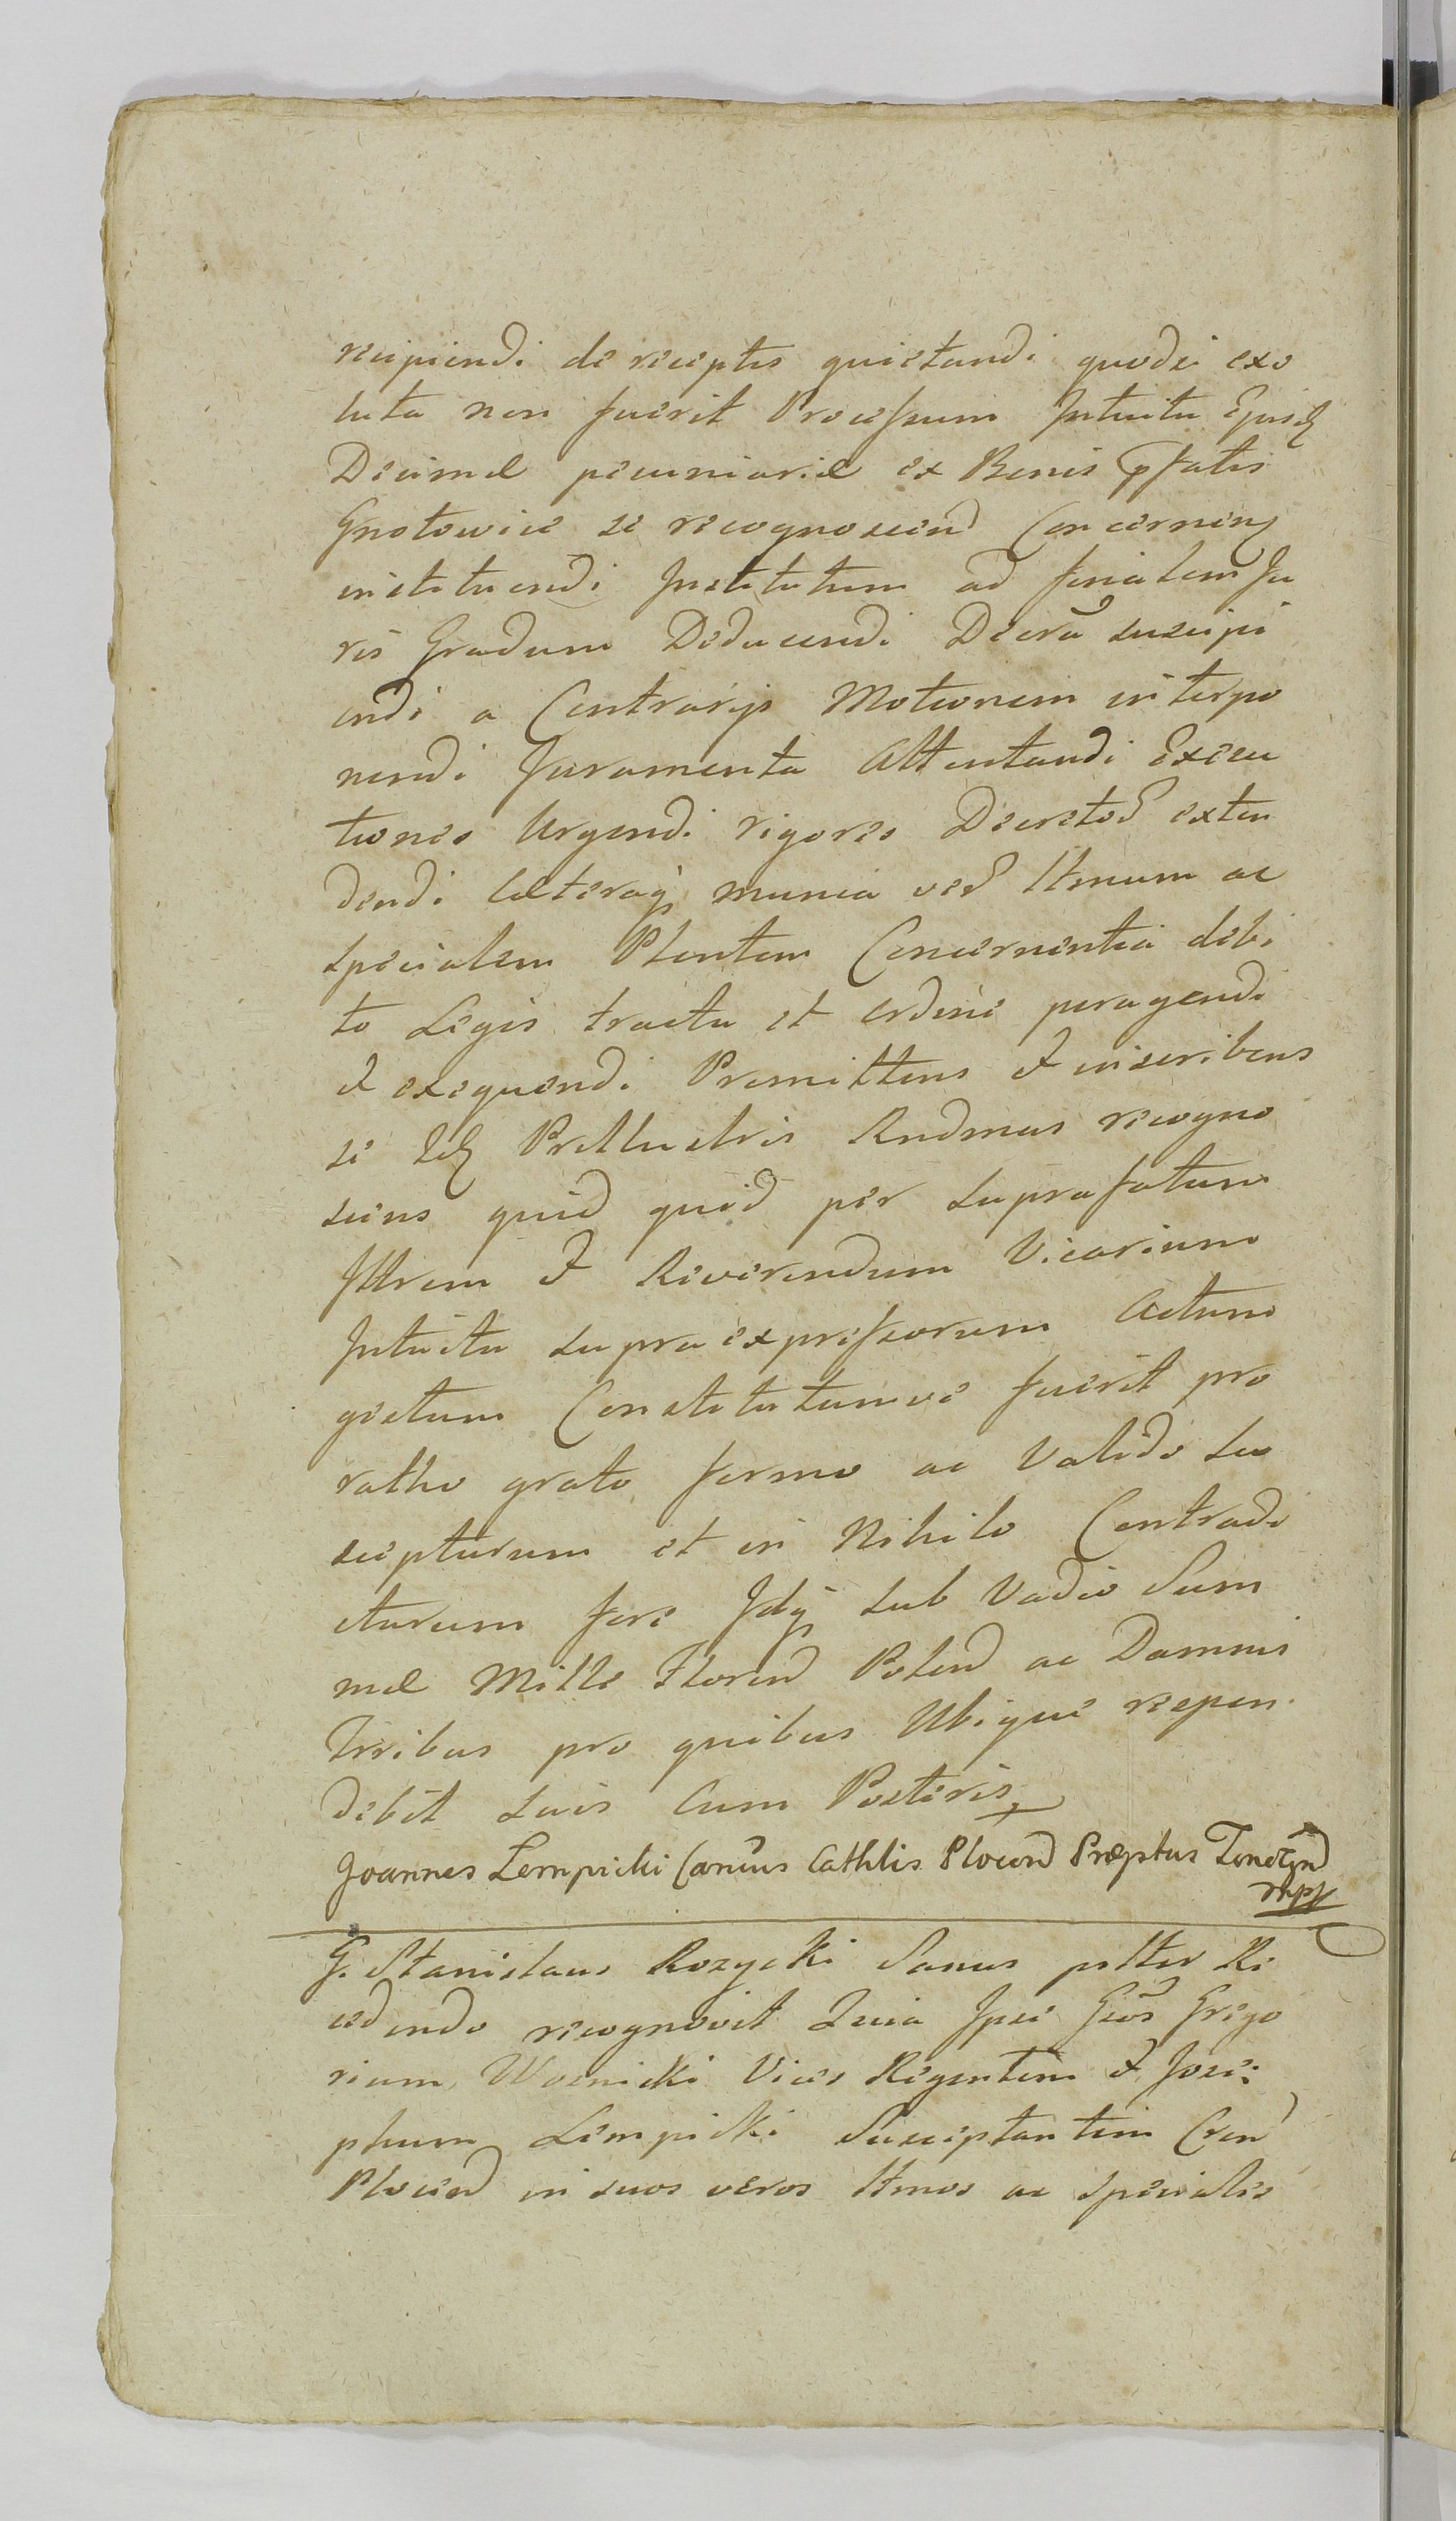 recipiendi de receptis quietandi quodsi exo
luta non fuerit Processum Intuitu Ejusd
Decimæ pecuniariæ ex Bonis pfatis
Gnotowice se recognoscend Concernen
instituendi Institutum ad finalem Ju
ris Gradum Deducendi Decra suscipi
endi a Contrarijs Motionem interpo
nendi Juramenta Attentandi Execu
tiones Urgendi rigores Decretod exten
dendi Cæteraq munia ved Itmum ac
specialem Plentem Concernentia debi
to Legis tractu et ordine peragendi
et exequendi Promittens et inscribens
se Prillustris Rndmus recogno
scens quid quod per suprafatum
Illrem et Reverendum Vicarium
Intuitu supra expressorum Actum
gestum Constitutumve fuerit pro
ratho grato firmo ac Valido su
scepturum et in Nihilo Contradi
cturum fore Idq sub Vadio Sum
mæ Mille Florend Polend ac Damnis
Trribus pro quibus Ubique respon
debit Suis Cum Posteris
Joannes Lempicki Canus Cathlis Plocen Præptus
mpp
G. Stanislaus Rozycki Sanus pstter Re
cedendo recognovit Quia Ipse Gsos Grego
rium Woznicki Vices Regentem et Jose:
phum Lempicki Susceptantem Cren
Plocen in suos veros Itmos ac speciales